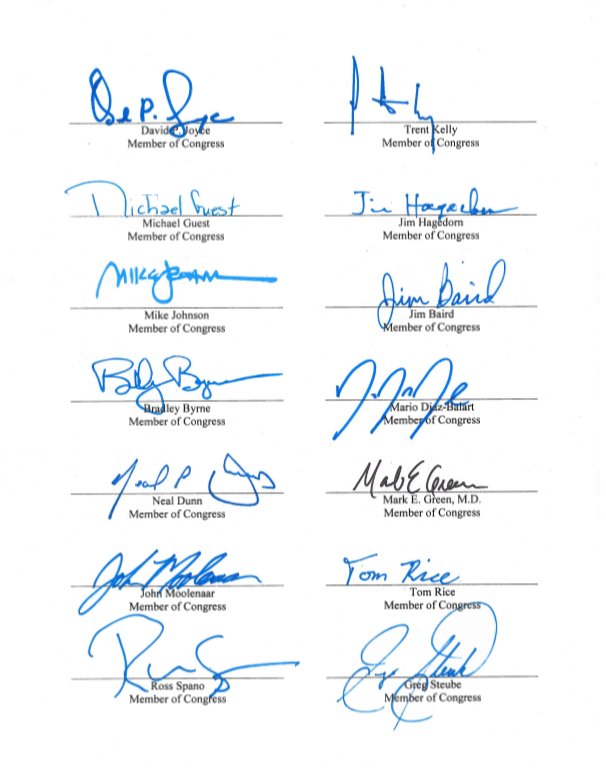 Dave P. Joyce
David P. Joyce
Member of Congress
Trent Kelly
Member of Congress
Michael Guest
Michael Guest
Member of Congress
Jim Hagedorn
Jim Hagedorn
Member of Congress
Mike Johnson
Mike Johnson
Member of Congress
Jim Baird
Jim Baird
Member of Congress
Bradley Byrne
Member of Congress
Mario Diaz-Balart
Member of Congress
Neal P Dunn
Neal Dunn
Member of Congress
Mark E Green
Mark E. Green, M.D.
Member of Congress
John Moolenaar
John Moolenaar
Member of Congress
Tom Rice
Tom Rice
Member of Congress
Ross Spano
Member of Congress
Greg Steube
Greg Steube
Member of Congress